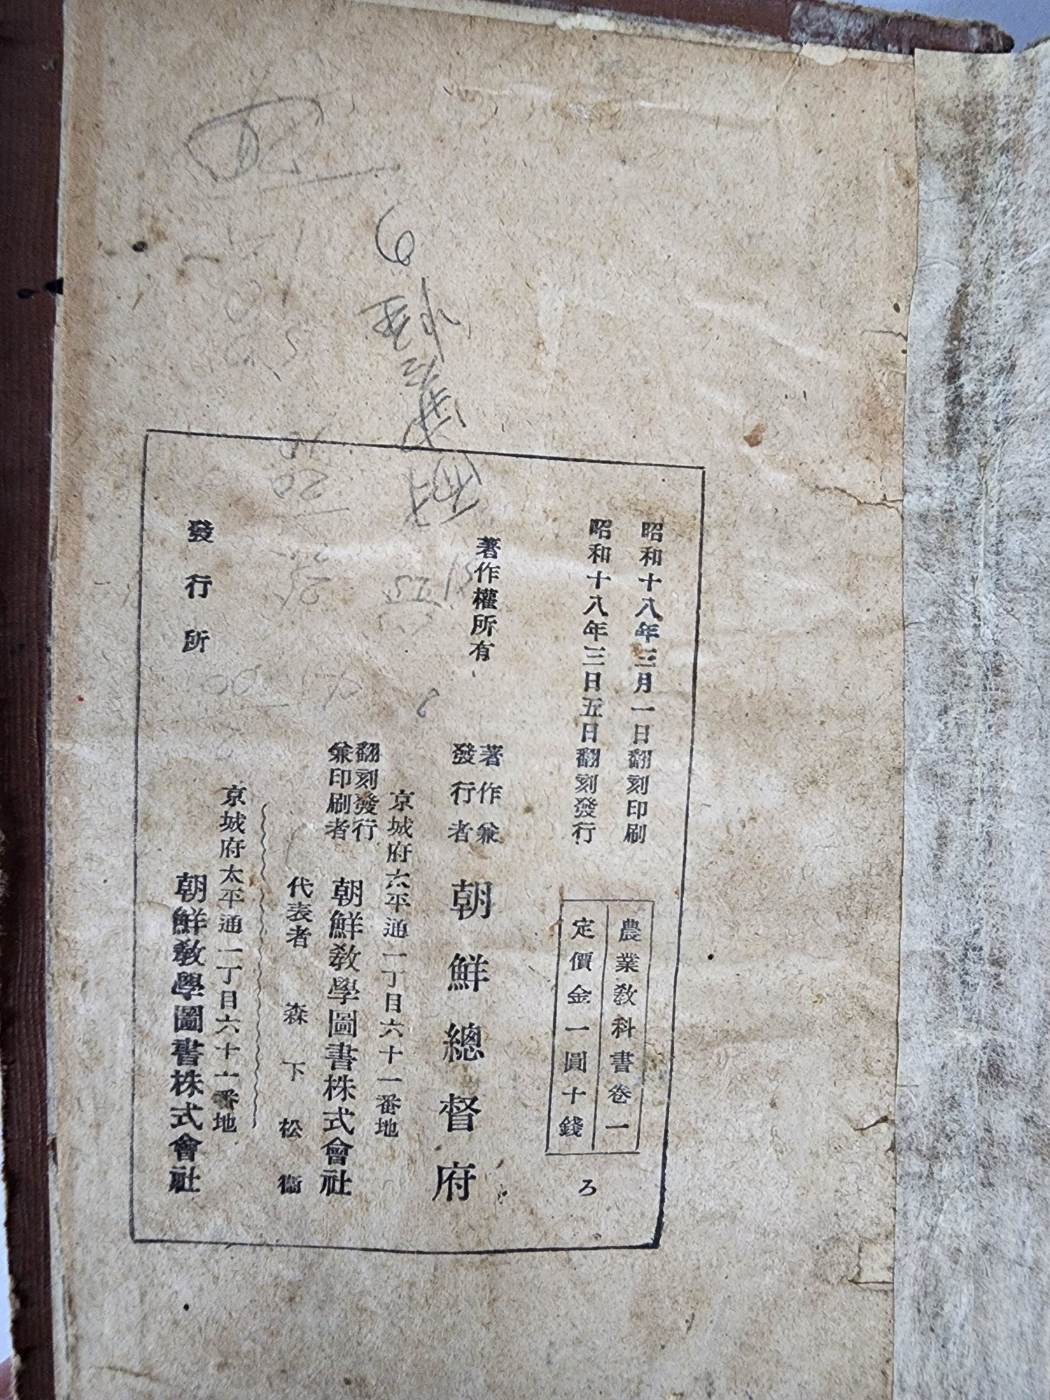 昭和十八年三月一日翻刻印刷
昭和十八年三日五日翻刻發行
農業敎科書卷一
定價金一圓十錢
ろ
著作權所有
著作兼
發行者
朝鮮總督府
京城府太平通一丁目六十一番地
翻刻發行
兼印刷者
朝鮮敎學圖書株式會社
代表者 森下松衞
京城府太平通一丁目六十一番地
發行所
朝鮮敎學圖書株式會社
6
20
25